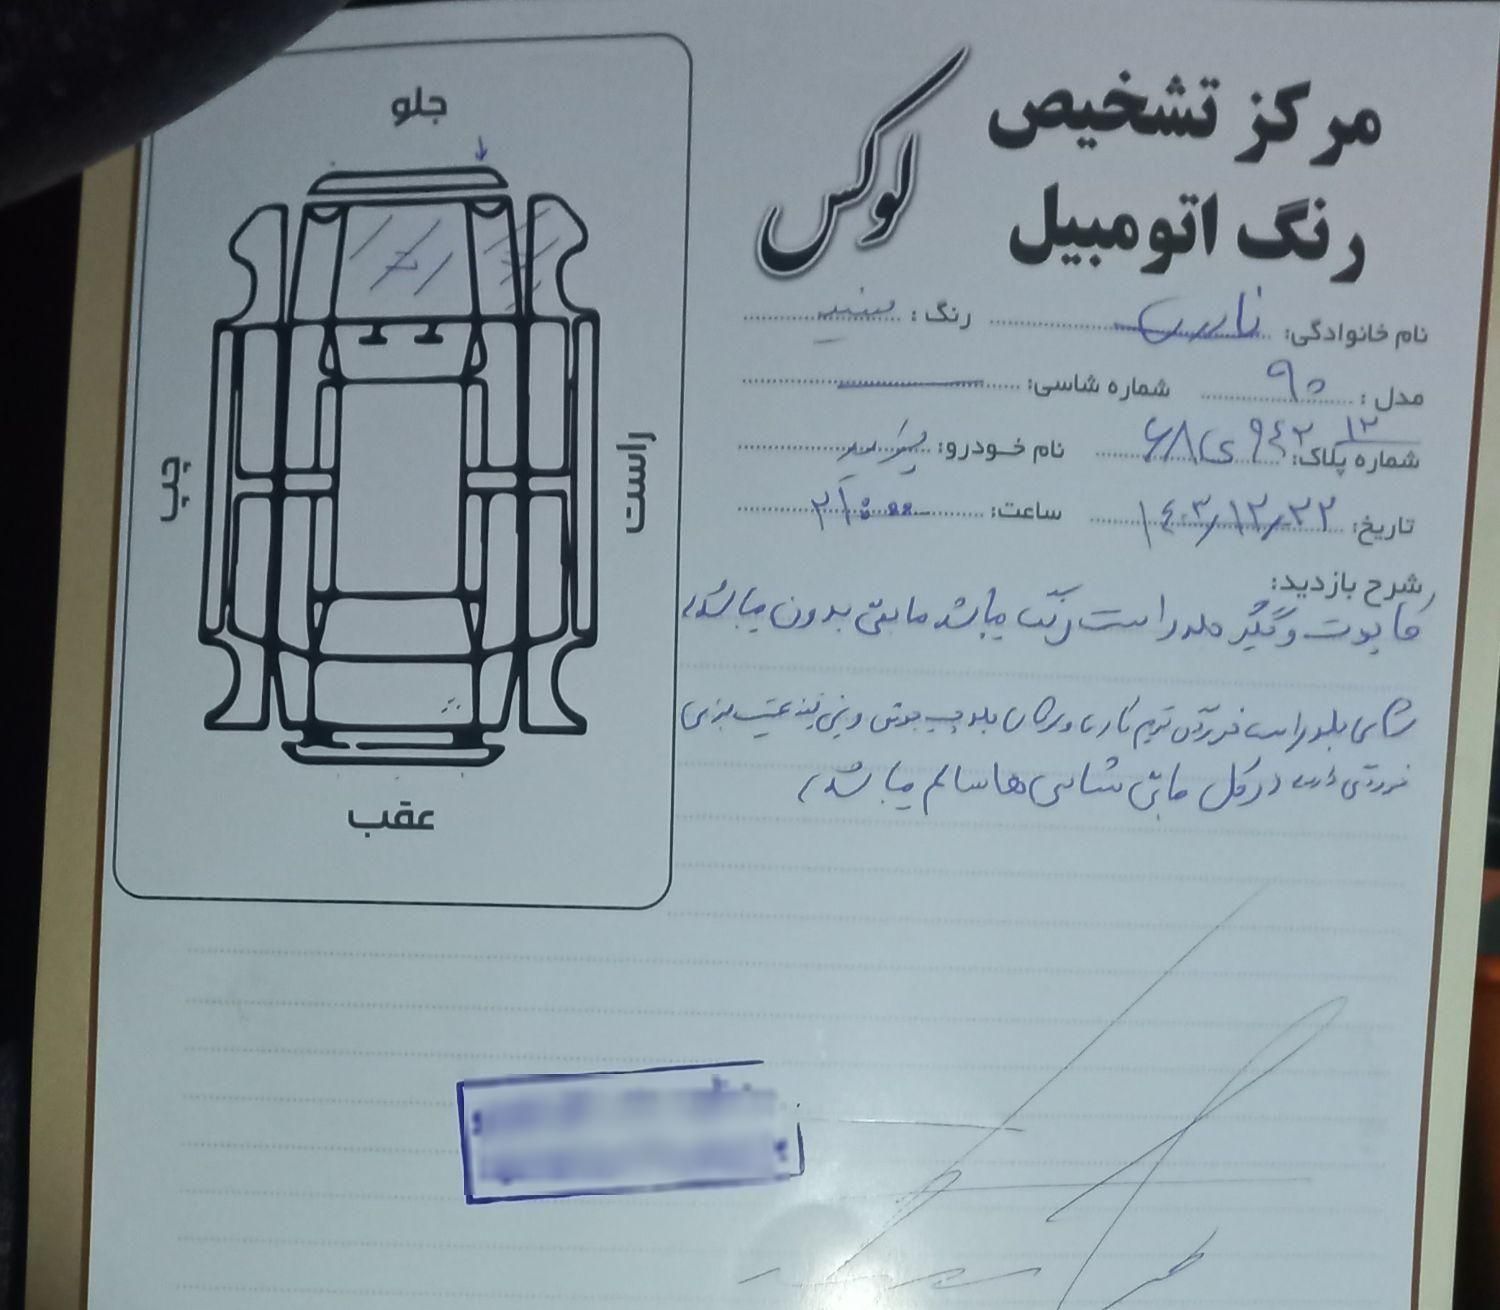 مرکز تشخیص
رنگ اتومبیل
لوکس
نام خانوادگی: رنگ: سفید
مدل: ۹۰ شماره شاسی:
شماره پلاک: ۶۸ ی ۹۴۲ ۱۲ نام خودرو: پراید
تاریخ: ۱۴۰۳/۱۲/۲۲ ساعت: ۲۱:۰۰
شرح بازدید:
کاپوت و گلگیر جلو راست رنگ میباشد مابقی بدون میباشد،
شاسی جلو راست خوردگی ترمیم کاری و جلو چپ جوش و سینی عقب جزیی
خوردگی دارد در کل مابقی شاسی ها سالم میباشد،
جلو
چپ
راست
عقب